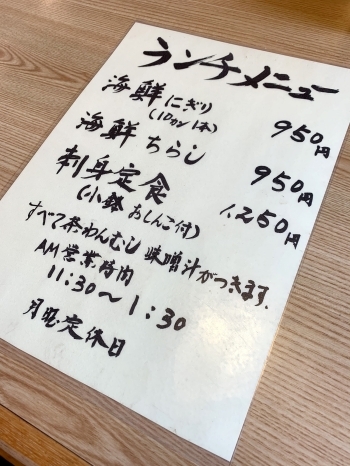 ランチメニュー
海鮮にぎり 950円
(10カン 1本)
海鮮ちらし 950円
刺身定食 1,250円
(小鉢 おしんこ付)
すべて茶わんむし 味噌汁がつきます.
AM営業時間
11:30〜1:30
月曜定休日